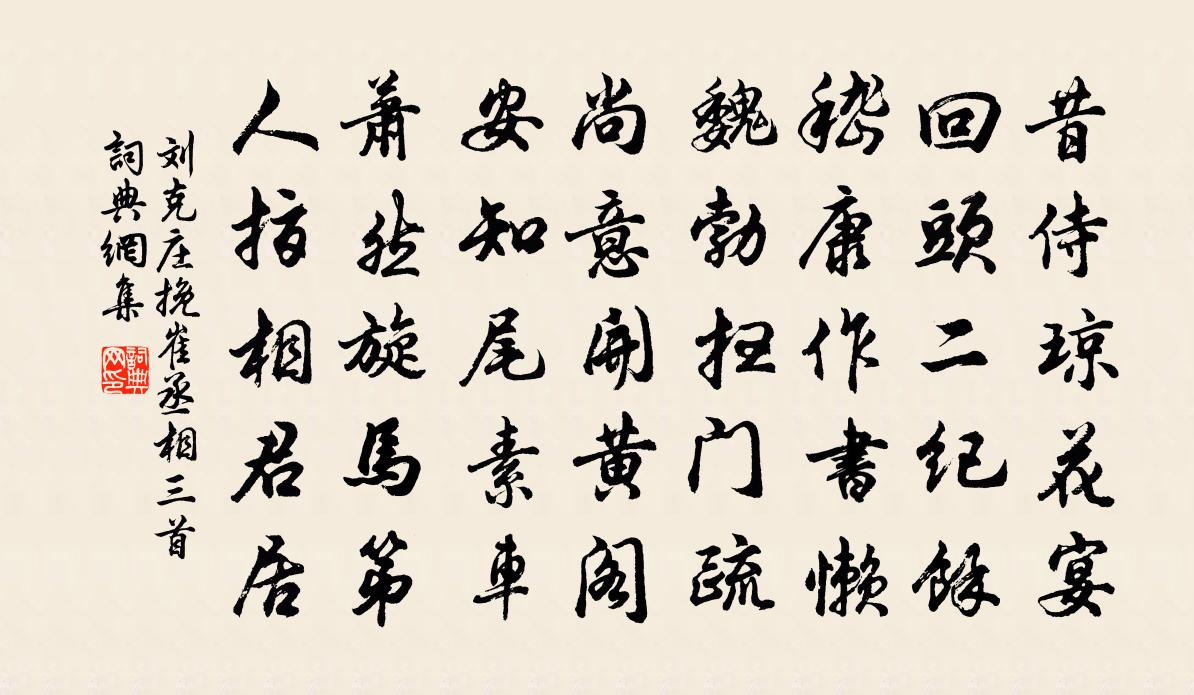 昔侍琼花宴
回頭二纪餘
嵇康作書懒
魏勃扫门疏
尚意開黄阁
安知尾素車
萧然旋馬第
人指相君居
刘克庄挽崔丞相三首
詞典網集
詞典网印